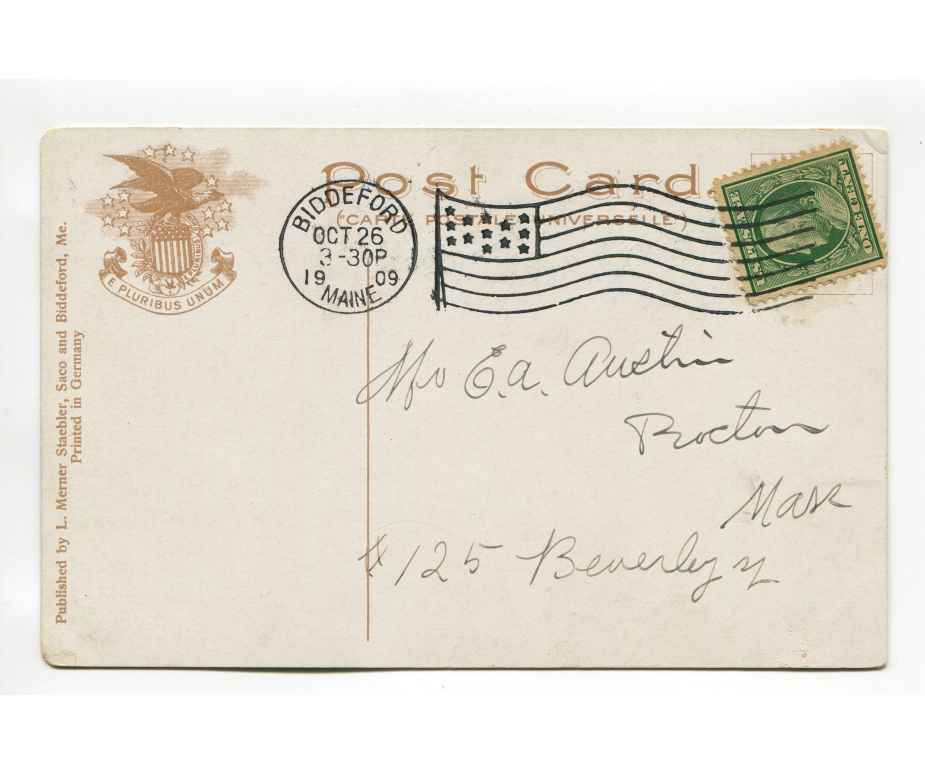 Post Card
(CARTE POSTALE UNIVERSELLE)
E PLURIBUS UNUM
BIDDEFORD
OCT 26
3-30P
19 09
MAINE
Published by L. Merner Staebler, Saco and Biddeford, Me.
Printed in Germany
E.A. Austin
Mass
125 Beverly